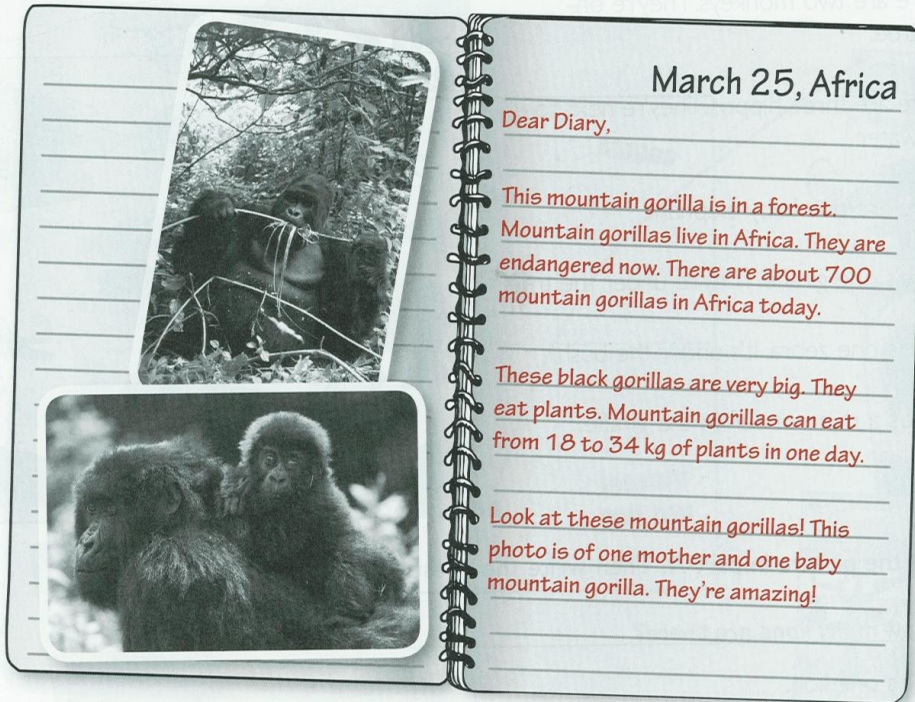 March 25, Africa
Dear Diary,
This mountain gorilla is in a forest.
Mountain gorillas live in Africa. They are
endangered now. There are about 700
mountain gorillas in Africa today.
These black gorillas are very big. They
eat plants. Mountain gorillas can eat
from 18 to 34 kg of plants in one day.
Look at these mountain gorillas! This
photo is of one mother and one baby
mountain gorilla. They're amazing!